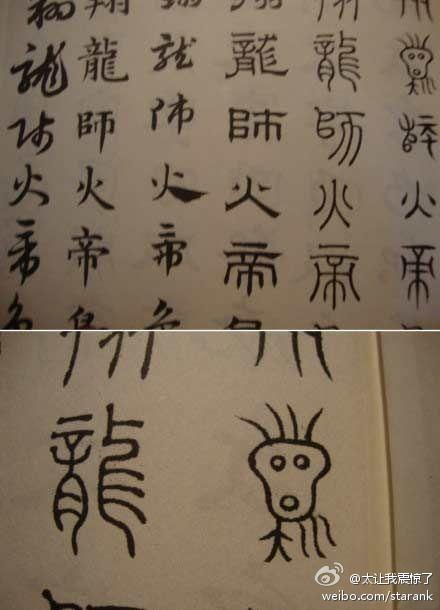 龍師火帝
龍師火帝
龍師火帝
龍師火帝
翔龍師火帝
翔龍師火帝
龍
龍
@太让我震惊了
weibo.com/starank